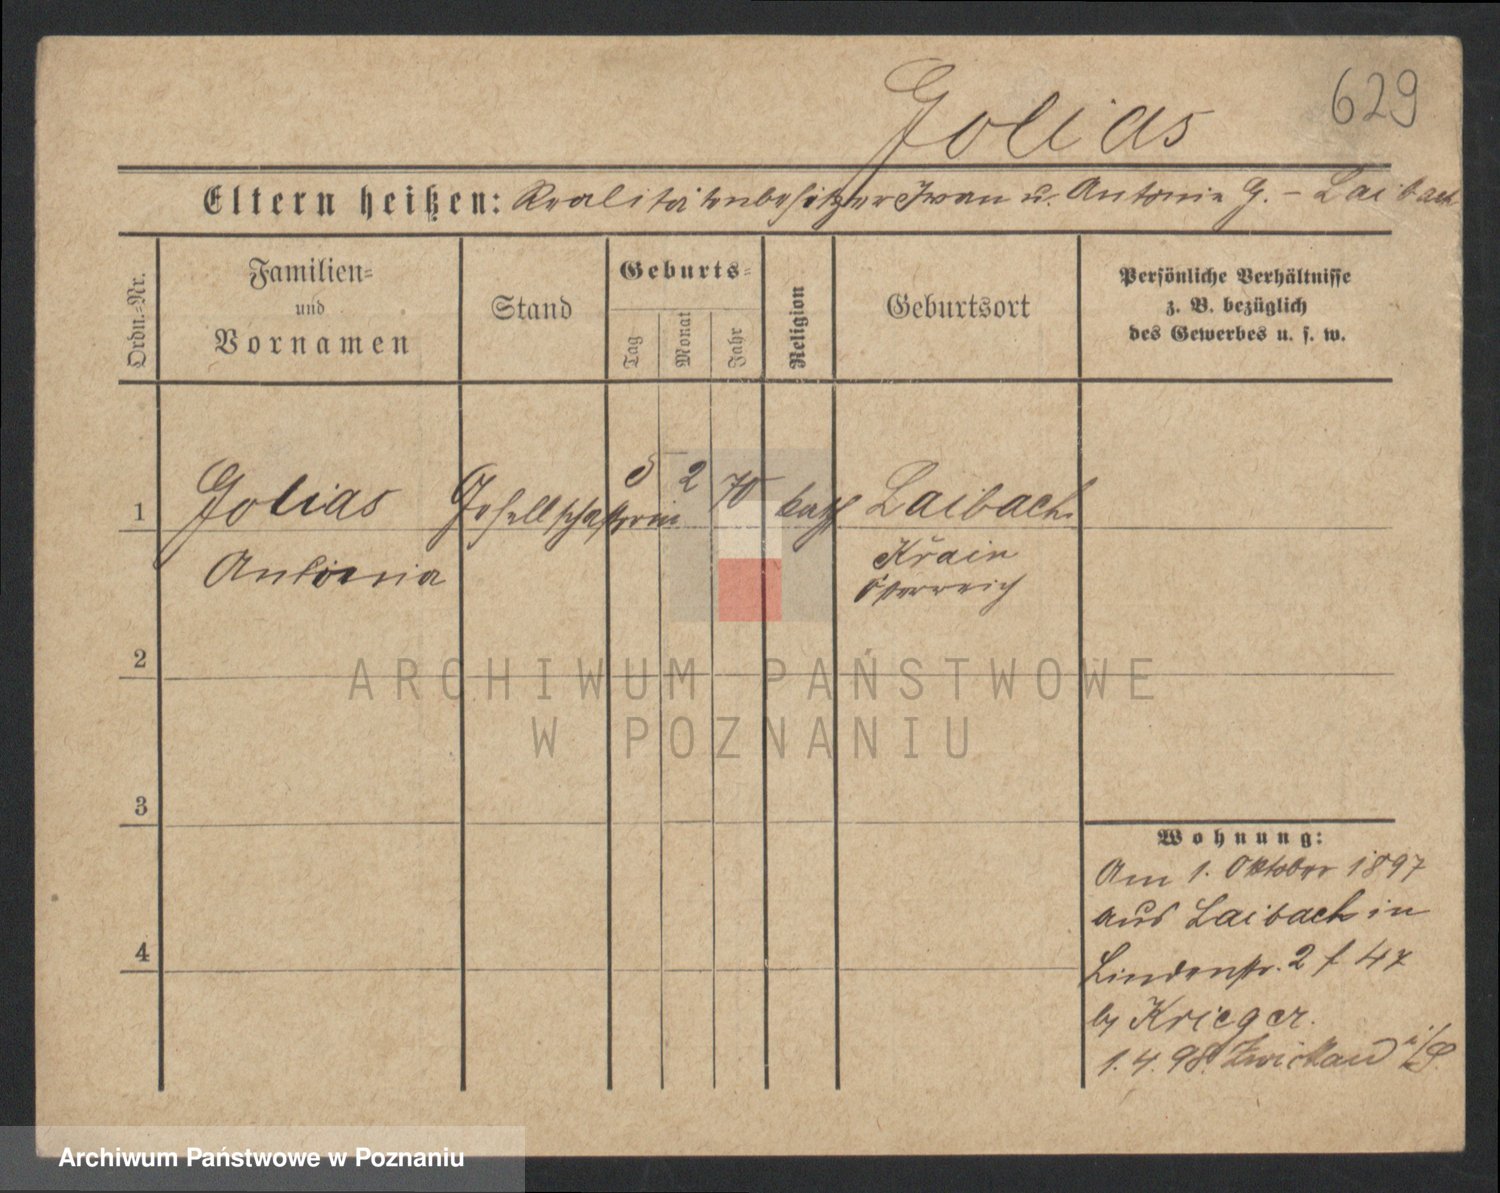 629
Golias
Eltern heißen: Realitätenbesitzer Ivan u. Antonie G. – Laibach
Ordn.-Nr.
Familien-
und
Vornamen
Stand
Geburts-
Tag
Monat
Jahr
Religion
Geburtsort
Persönliche Verhältnisse
z. B. bezüglich
des Gewerbes u. s. w.
1 Golias Gesellschafterin 5 2 70 kath Laibach
Antonia Krain
Österreich
2
ARCHIWUM PAŃSTWOWE
W POZNANIU
3
Wohnung:
Am 1. Oktober 1897
aus Laibach in
4
Lindenstr. 2 f 47
by Krieger.
1.4.98. Zwickau i/S.
Archiwum Państwowe w Poznaniu